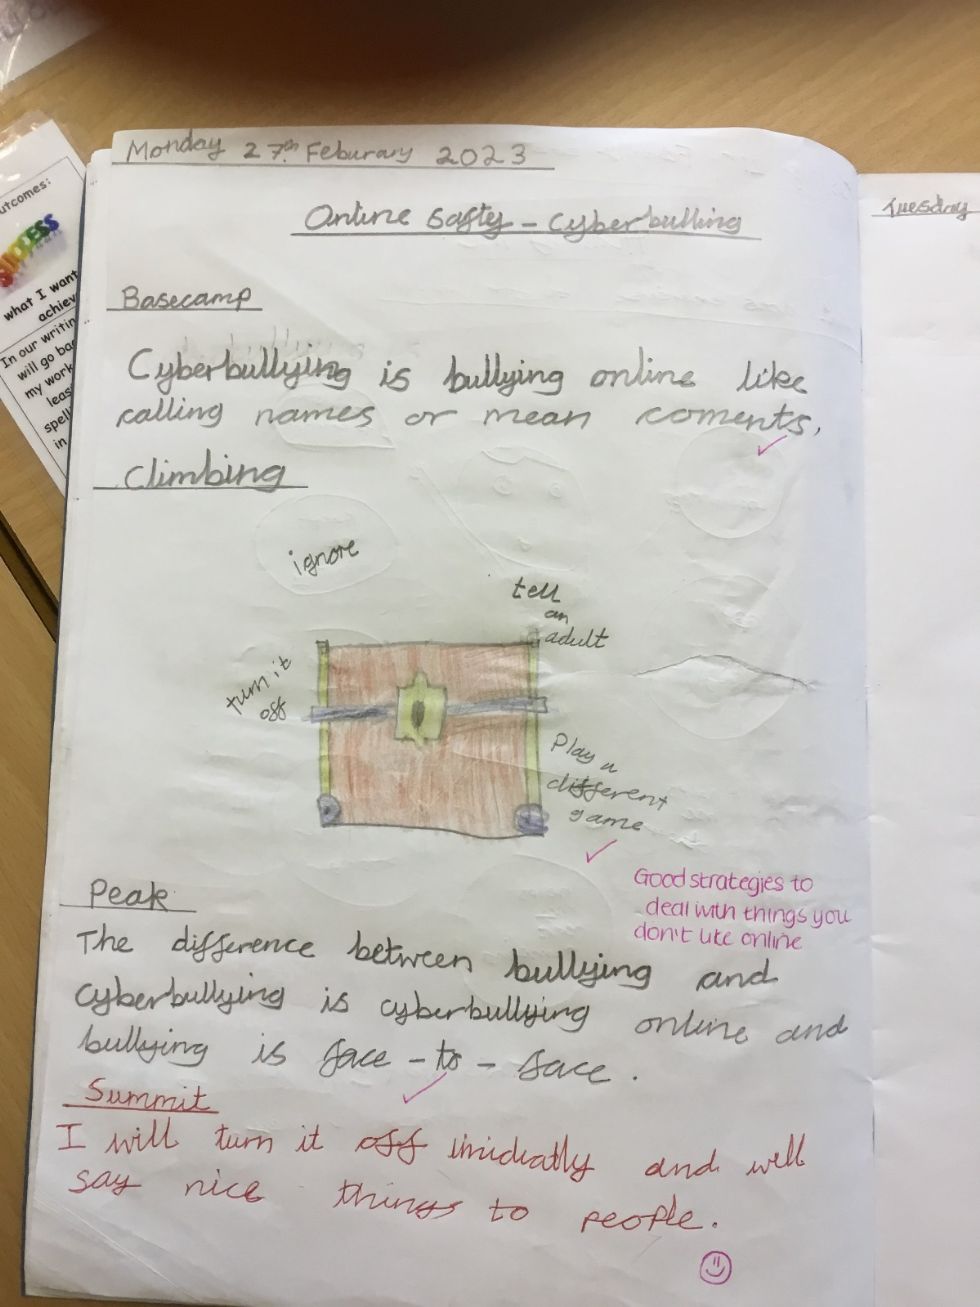 Monday 27th Feburary 2023
Online Safty - Cyberbulling
Tuesday
utcomes:
SUCCESS
what I want
achiev
In our writin
will go ba
my work
leas
spell
in
Basecamp
Cyberbullying is bullying online like
calling names or mean coments.
Climbing
ignore
tell
an
adult
turn it
off
Play a
different
game
Good strategies to
deal with things you
don't like online
Peak
The difference between bullying and
cyberbullying is cyberbullying online and
bullying is face-to-face.
Summit
I will turn it off imidiatly and will
say nice things to people.